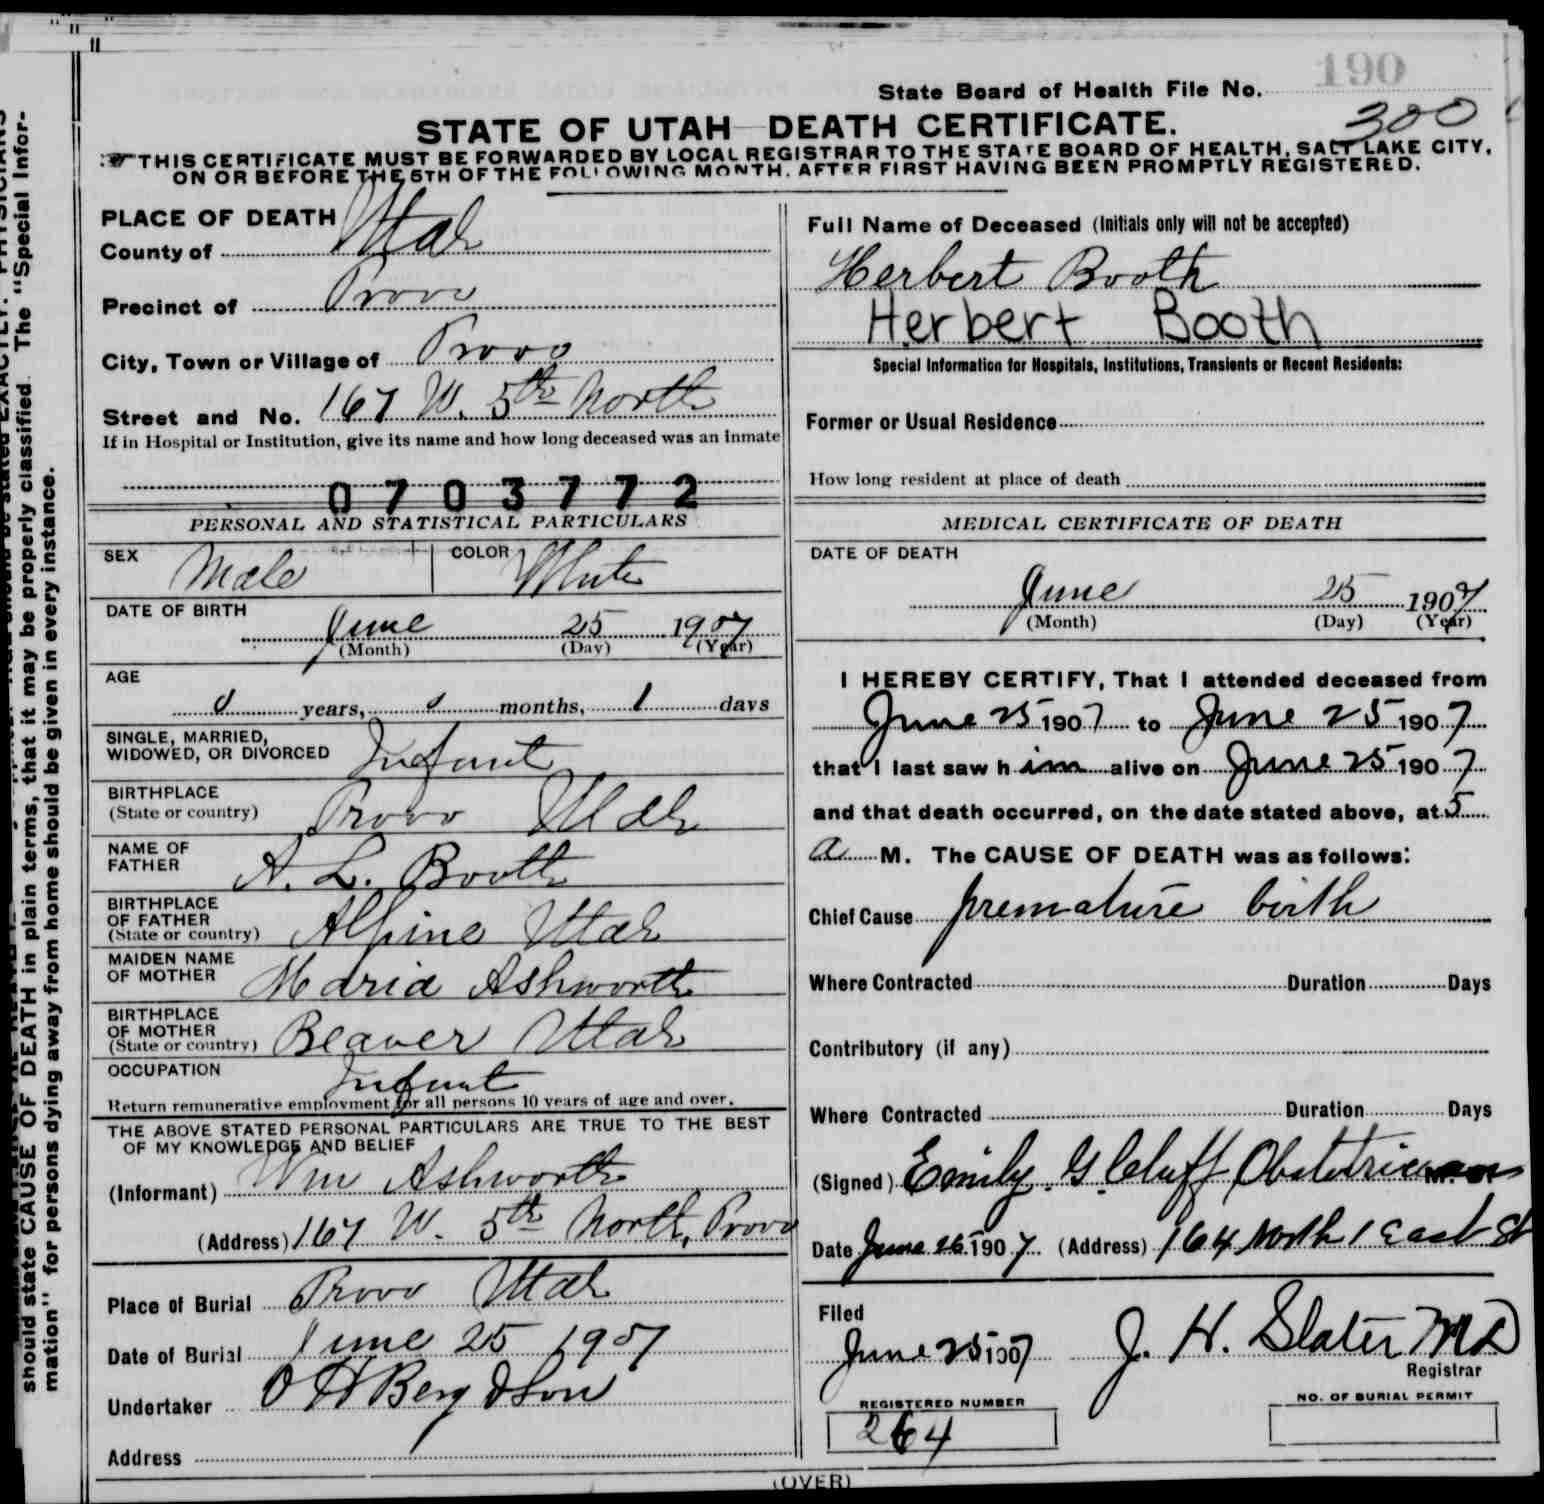 190
State Board of Health File No.
300
STATE OF UTAH—DEATH CERTIFICATE.
THIS CERTIFICATE MUST BE FORWARDED BY LOCAL REGISTRAR TO THE STATE BOARD OF HEALTH, SALT LAKE CITY,
ON OR BEFORE THE 5TH OF THE FOLLOWING MONTH, AFTER FIRST HAVING BEEN PROMPTLY REGISTERED.
should state CAUSE OF DEATH in plain terms, that it may be properly classified. The "Special Infor-
mation" for persons dying away from home should be given in every instance.
PLACE OF DEATH
County of Utah
Precinct of Provo
City, Town or Village of Provo
Street and No. 167 W. 5th North
If in Hospital or Institution, give its name and how long deceased was an inmate
0703772
PERSONAL AND STATISTICAL PARTICULARS
SEX Male COLOR White
DATE OF BIRTH
June 25 1907
(Month) (Day) (Year)
AGE
0 years, 0 months, 1 days
SINGLE, MARRIED,
WIDOWED, OR DIVORCED Infant
BIRTHPLACE
(State or country) Provo Utah
NAME OF
FATHER A. L. Booth
BIRTHPLACE
OF FATHER
(State or country) Alpine Utah
MAIDEN NAME
OF MOTHER Maria Ashworth
BIRTHPLACE
OF MOTHER
(State or country) Beaver Utah
OCCUPATION
Infant
Return remunerative employment for all persons 10 years of age and over.
THE ABOVE STATED PERSONAL PARTICULARS ARE TRUE TO THE BEST
OF MY KNOWLEDGE AND BELIEF
(Informant) Wm Ashworth
(Address) 167 W. 5th North, Provo
Place of Burial Provo Utah
Date of Burial June 25 1907
Undertaker O H Berg & Son
Address
Full Name of Deceased (Initials only will not be accepted)
Herbert Booth
Herbert Booth
Special Information for Hospitals, Institutions, Transients or Recent Residents:
Former or Usual Residence
How long resident at place of death
MEDICAL CERTIFICATE OF DEATH
DATE OF DEATH
June 25 1907
(Month) (Day) (Year)
I HEREBY CERTIFY, That I attended deceased from
June 25 1907 to June 25 1907
that I last saw him alive on June 25 1907
and that death occurred, on the date stated above, at 5
a M. The CAUSE OF DEATH was as follows:
Chief Cause premature birth
Where Contracted Duration Days
Contributory (if any)
Where Contracted Duration Days
(Signed) Emily G. Cluff Obstetrician
Date June 25 1907 (Address) 164 North 1 East St
Filed
June 25 1907 J. H. Slater MD
Registrar
REGISTERED NUMBER
264
NO. OF BURIAL PERMIT
(OVER)